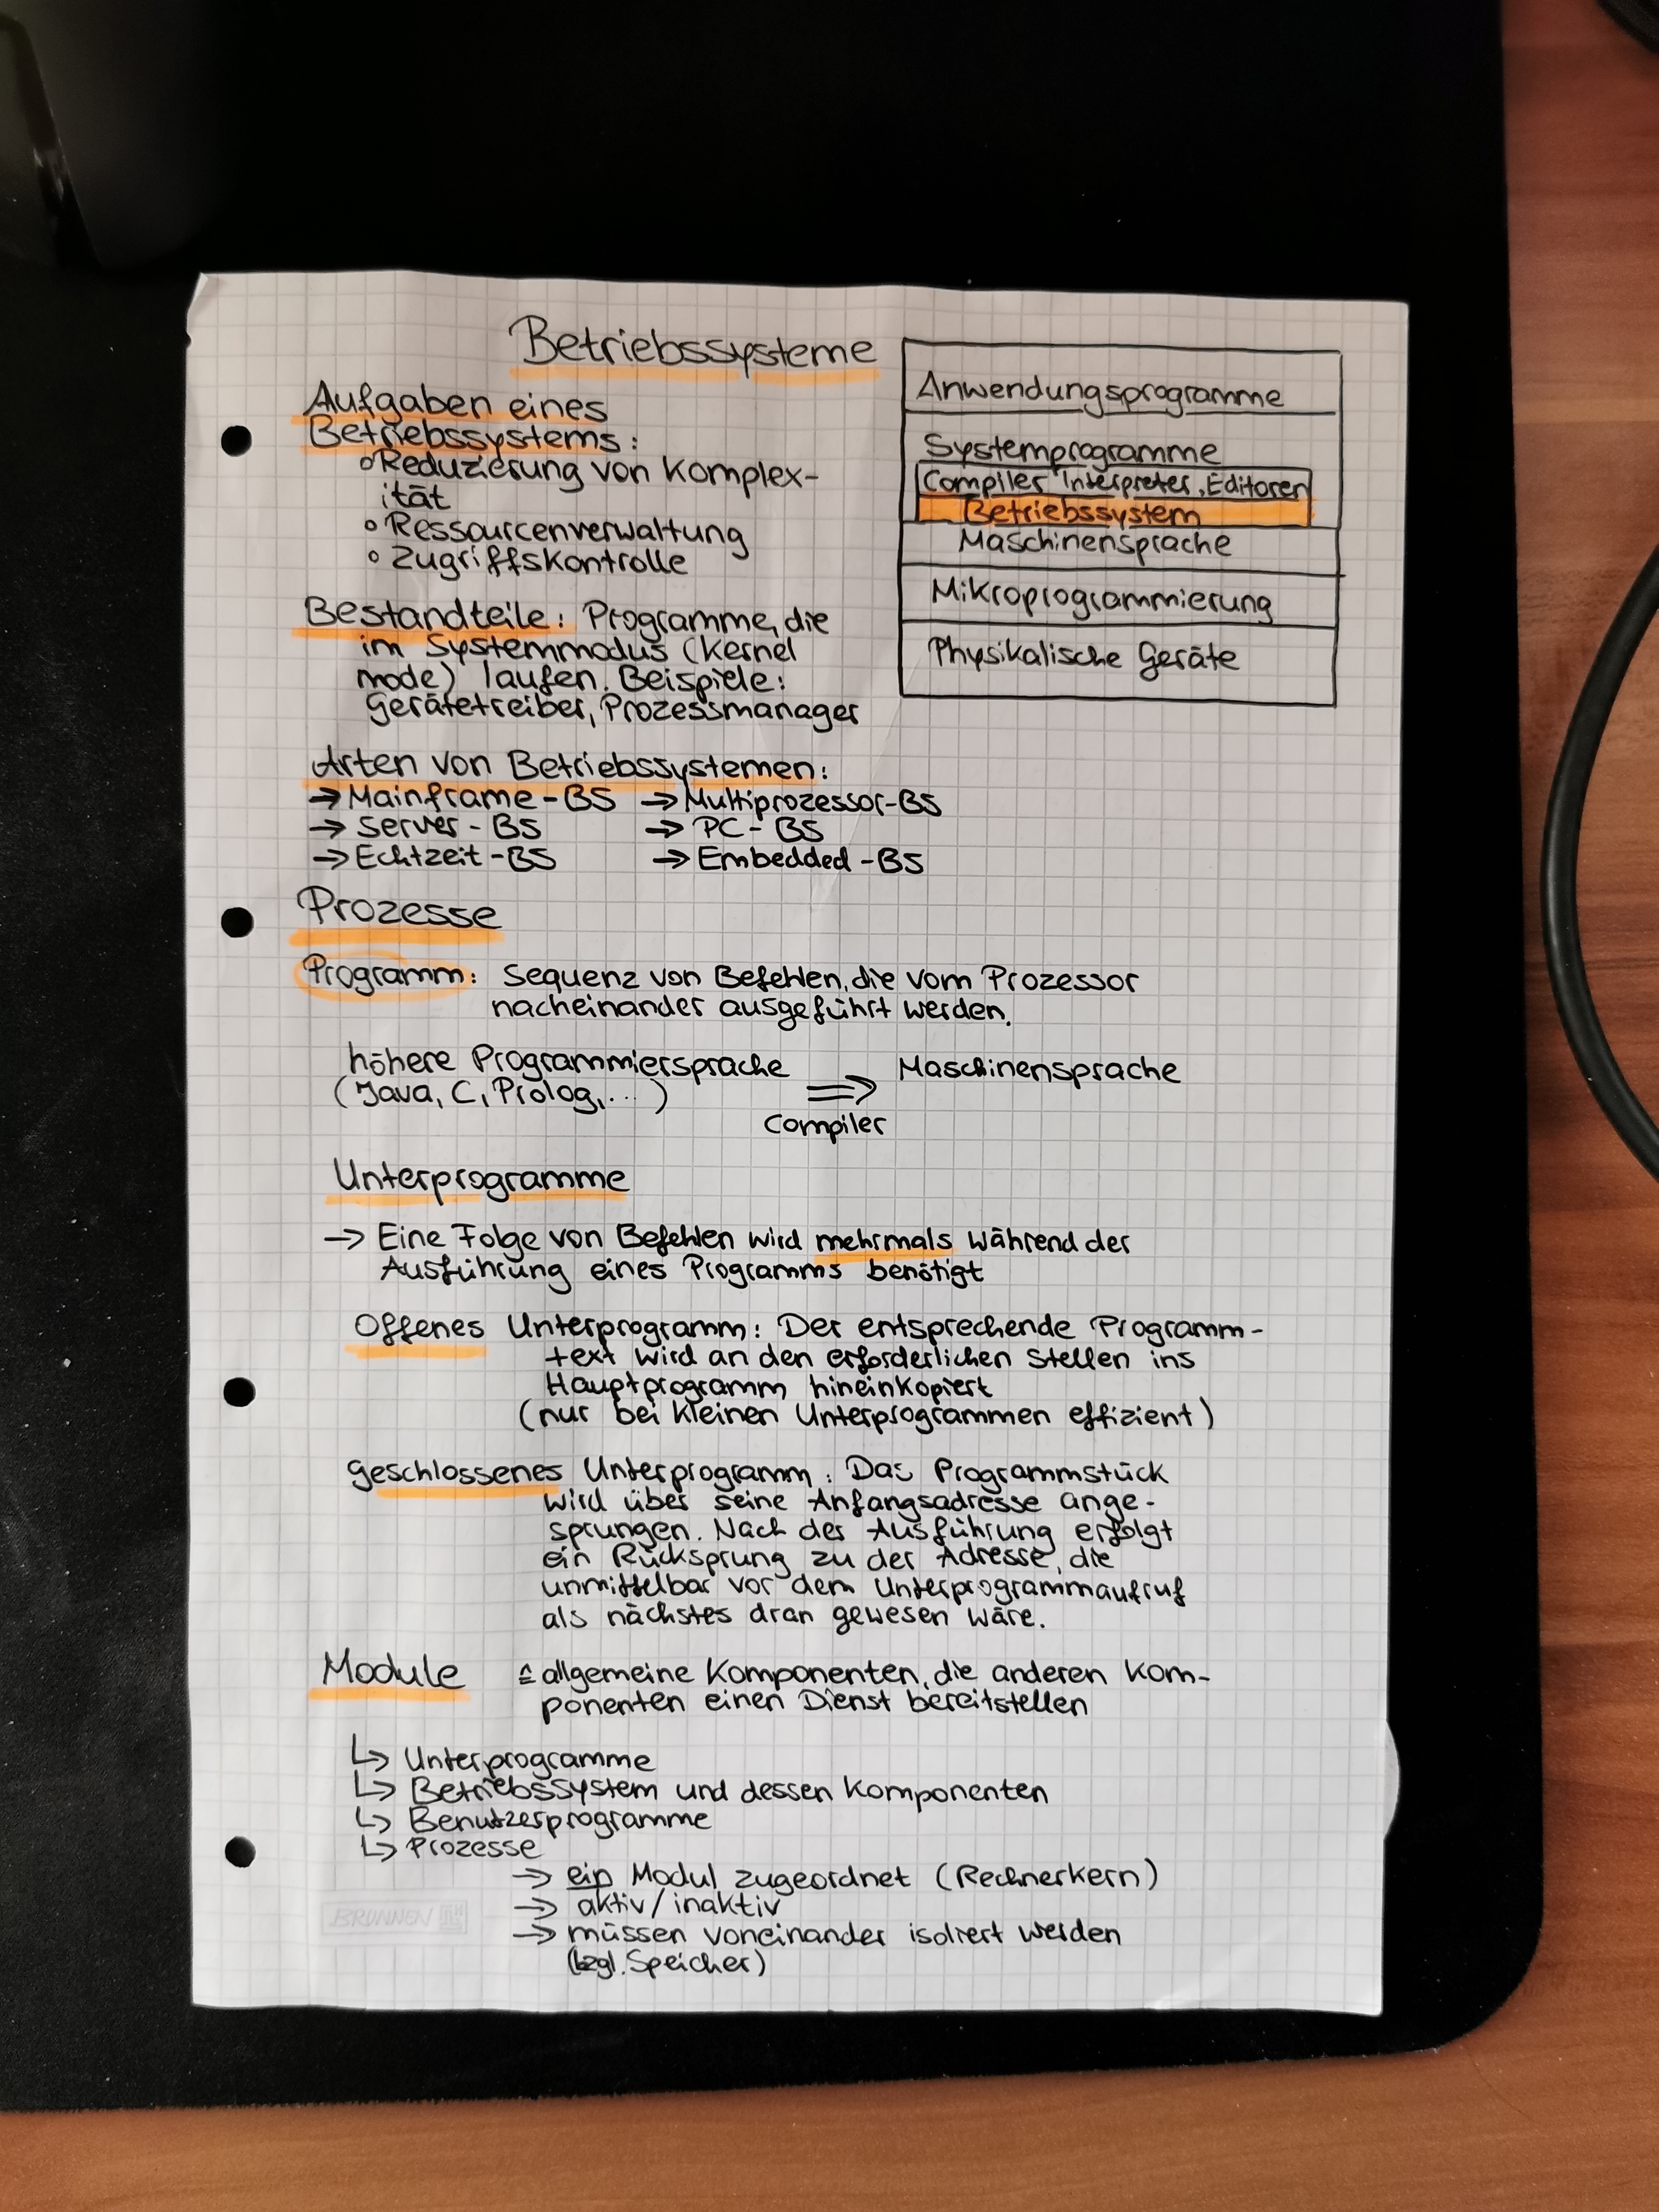 Betriebssysteme
Aufgaben eines
Betriebssystems:
° Reduzierung von Komplex-
ität
° Ressourcenverwaltung
° Zugriffskontrolle
Anwendungsprogramme
Systemprogramme
Compiler Interpreter, Editoren
Betriebssystem
Maschinensprache
Mikroprogrammierung
Physikalische Geräte
Bestandteile: Programme, die
im Systemmodus (Kernel
mode) laufen. Beispiele:
Gerätetreiber, Prozessmanager
Arten von Betriebssystemen:
→ Mainframe-BS → Multiprozessor-BS
→ Server-BS → PC-BS
→ Echtzeit-BS → Embedded-BS
Prozesse
Programm: Sequenz von Befehlen, die vom Prozessor
nacheinander ausgeführt werden.
höhere Programmiersprache ⇒ Maschinensprache
(Java, C, Prolog, ...)
Compiler
Unterprogramme
→ Eine Folge von Befehlen wird mehrmals während der
Ausführung eines Programms benötigt
Offenes Unterprogramm: Der entsprechende Programm-
text wird an den erforderlichen Stellen ins
Hauptprogramm hineinkopiert
(nur bei kleinen Unterprogrammen effizient)
Geschlossenes Unterprogramm: Das Programmstück
wird über seine Anfangsadresse ange-
sprungen. Nach der Ausführung erfolgt
ein Rücksprung zu der Adresse, die
unmittelbar vor dem Unterprogrammaufruf
als nächstes dran gewesen wäre.
Module ≙ allgemeine Komponenten, die anderen Kom-
ponenten einen Dienst bereitstellen
↳ Unterprogramme
↳ Betriebssystem und dessen Komponenten
↳ Benutzerprogramme
↳ Prozesse
→ ein Modul zugeordnet (Rechnerkern)
→ aktiv/inaktiv
→ müssen voneinander isoliert werden
(bzgl. Speicher)
BRUNNEN